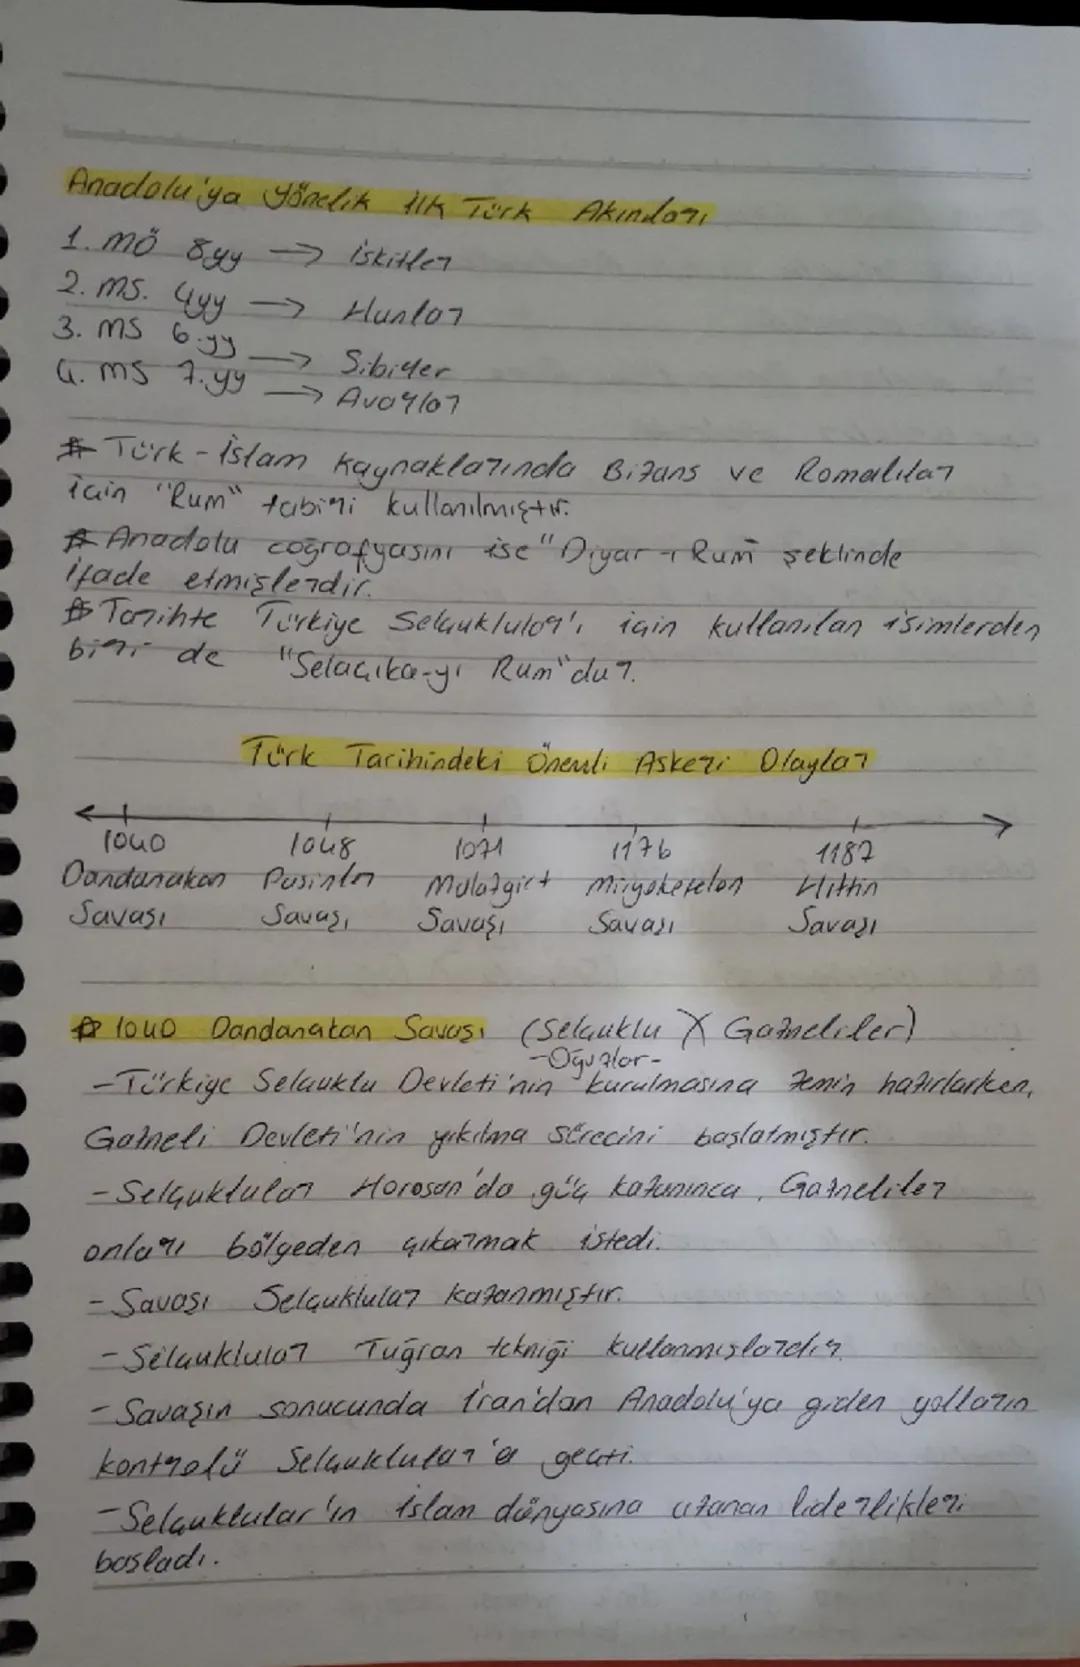 Anadolu'ya Yönelik ilk Türk Akınları
1. MÖ 8yy → İskitler
2. MS. 4yy → Hunlar
3. MS 6.yy → Sibirler
4. MS 7.yy → Avarlar
* Türk-İslam kaynaklarında Bizans ve Romalılar
için "Rum" tabiri kullanılmıştır.
* Anadolu coğrafyasını ise "Diyar-ı Rum" şeklinde
ifade etmişlerdir.
* Tarihte Türkiye Selçukluları'ı için kullanılan isimlerden
biri de "Selaçıka-yı Rum"dur.
Türk Tarihindeki Önemli Askeri Olaylar
1040 1048 1071 1176 1187
Dandanakan Pasinler Malazgirt Miryokefelon Hittin
Savaşı Savaşı Savaşı Savaşı Savaşı
* 1040 Dandanakan Savaşı (Selçuklu X Gazneliler)
-Oğuzlar-
- Türkiye Selçuklu Devleti'nin kurulmasına zemin hazırlarken,
Gazneli Devleti'nin yıkılma sürecini başlatmıştır.
- Selçuklular Horosan'da güç kazanınca, Gazneliler
onları bölgeden çıkarmak istedi.
- Savaşı Selçuklular kazanmıştır.
- Selçuklular Tuğran tekniği kullanmışlardır.
- Savaşın sonucunda İran'dan Anadolu'ya giden yolların
kontrolü Selçuklular'a geçti.
- Selçuklular'ın İslam dünyasına uzanan liderlikleri
başladı.